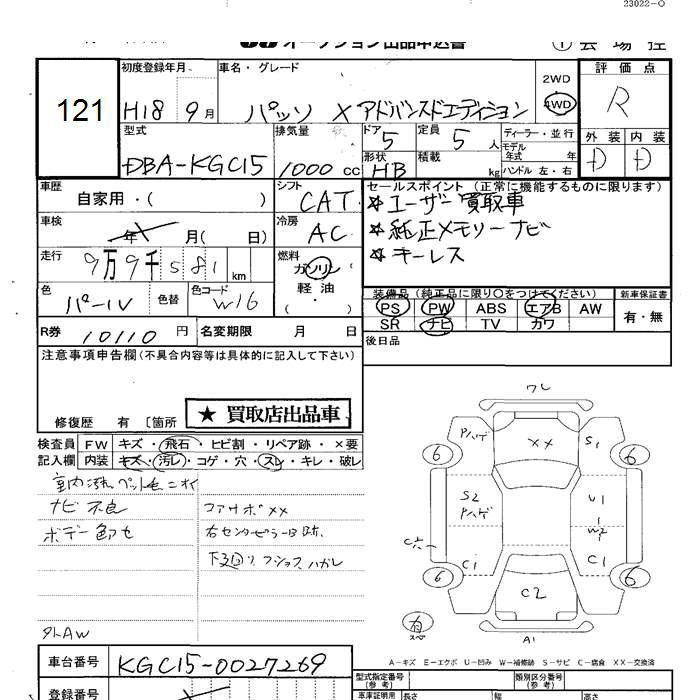 23022-0
オークション出品申込書 ① 会場控
121
初度登録年月 車名・グレード 2WD 評価点
H18 9月 パッソ X アドバンスドエディション 4WD R
型式 排気量 ドア 定員 ディーラー・並行 外装 内装
DBA-KGC15 1000 cc 5 5人 モデル年式 年 D D
形状 積載 ハンドル 左・右
HB kg
車歴 シフト セールスポイント (正常に機能するものに限ります)
自家用・( ) CAT ☆ユーザー買取車
車検 冷房 ☆純正メモリーナビ
年 月( 日) AC ☆キーレス
走行 燃料
9万9千581 km ガソリン
軽油
( ・ )
色 色替 色コード 装備品 (純正品に限り○をつけてください) 新車保証書
パール W16 PS PW ABS エアB AW 有・無
SR ナビ TV カワ
R券 10110 円 名変期限 月 日 後日品
注意事項申告欄(不具合内容等は具体的に記入して下さい)
修復歴 有 〔箇所 ★ 買取店出品車
検査員 FW キズ・飛石・ヒビ割・リペア跡・×要
記入欄 内装 キズ・汚レ・コゲ・穴・スレ・キレ・破レ
室内汚れ ペット毛ニオイ
ナビ不良
ボデー色ワセ
下廻リ フショク ハガレ
外AW
ワレ
Pハゲ XX S1
6 6
S2 U1
Pハゲ W2
C1 C1
6 6
C2
有
スペア
A1
A-キズ E-エクボ U-凹み W-補修跡 S-サビ C-腐食 XX-交換済
車台番号 KGC15-0027269 型式指定番号 (参考) 類別区分番号 (参考)
登録番号 車庫証明用 長さ 幅 高さ